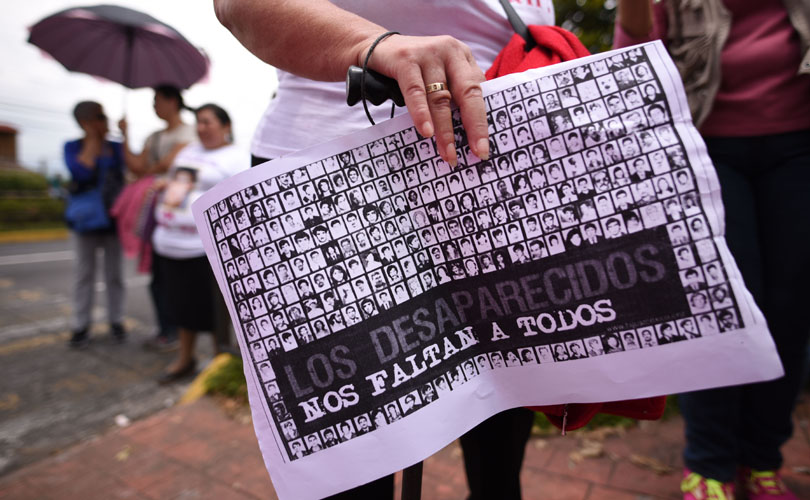 LOS DESAPARECIDOS
NOS FALTAN A TODOS